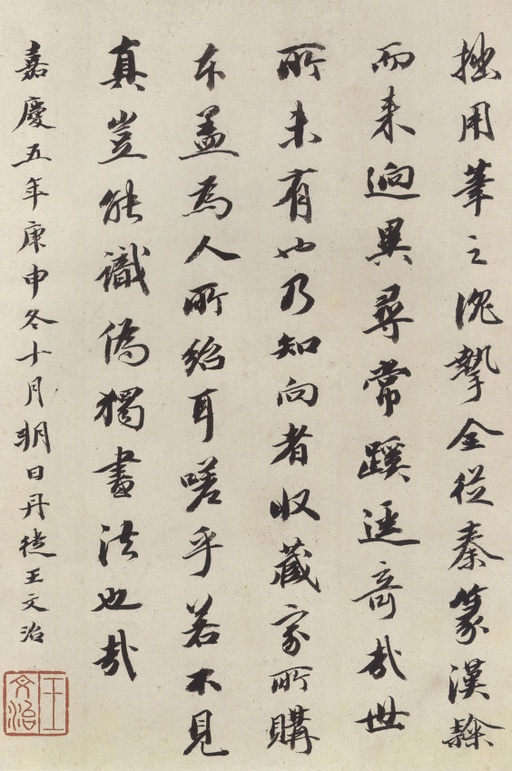 拙用筆之沈摯全從秦篆漢隸
而来逈異尋常蹊逕奇哉世
所未有也乃知向者收藏家所購
本盖為人所紿耳嗟乎若不見
真豈能識偽獨畫法也哉
嘉慶五年庚申冬十月朔日丹徒王文治
王文治